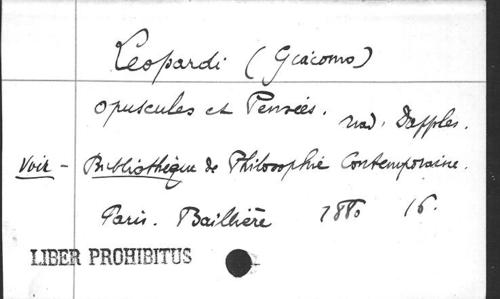 Leopardi (Giacomo)
Opuscules et Pensées. trad. Dapples.
Voir - Bibliothèque de Philosophie Contemporaine.
Paris. Baillière 1880 16.
LIBER PROHIBITUS